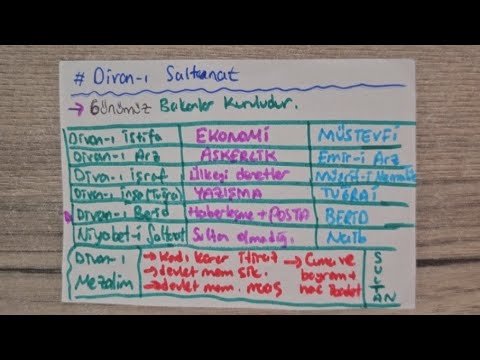 # Divan-ı Saltanat
→ Günümüz Bakanlar Kuruludur.
Divan-ı İstifa EKONOMİ MÜSTEVFİ
Divan-ı Arz ASKERLİK Emir-i Arz
Divan-ı İşraf Ülkeyi denetler
Divan-ı İnşa (Tuğra) YAZIŞMA TUĞRAİ
Divan-ı Berid Haberleşme + POSTA BERİD
Niyabet-i Saltanat Sultan olmadığı Naib
Divan-ı Mezalim
→ Kadı karar itiraz → Cuma ve
→ devlet mem şik. bayram +
→ devlet mem. maaş hac
SULTAN